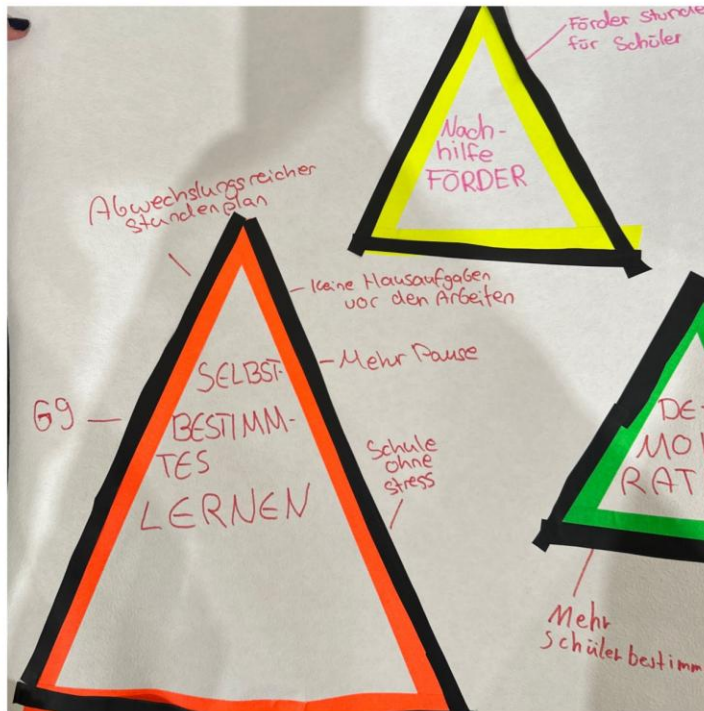 Förder stunde
für Schüler
Nach-
hilfe
FÖRDER
Abwechslungsreicher
Stundenplan
Keine Hausaufgaben
vor den Arbeiten
Mehr Pause
G9
SELBST-
BESTIMM-
TES
LERNEN
Schule
ohne
stress
DE-
MO
RAT
Mehr
Schülerbestimm